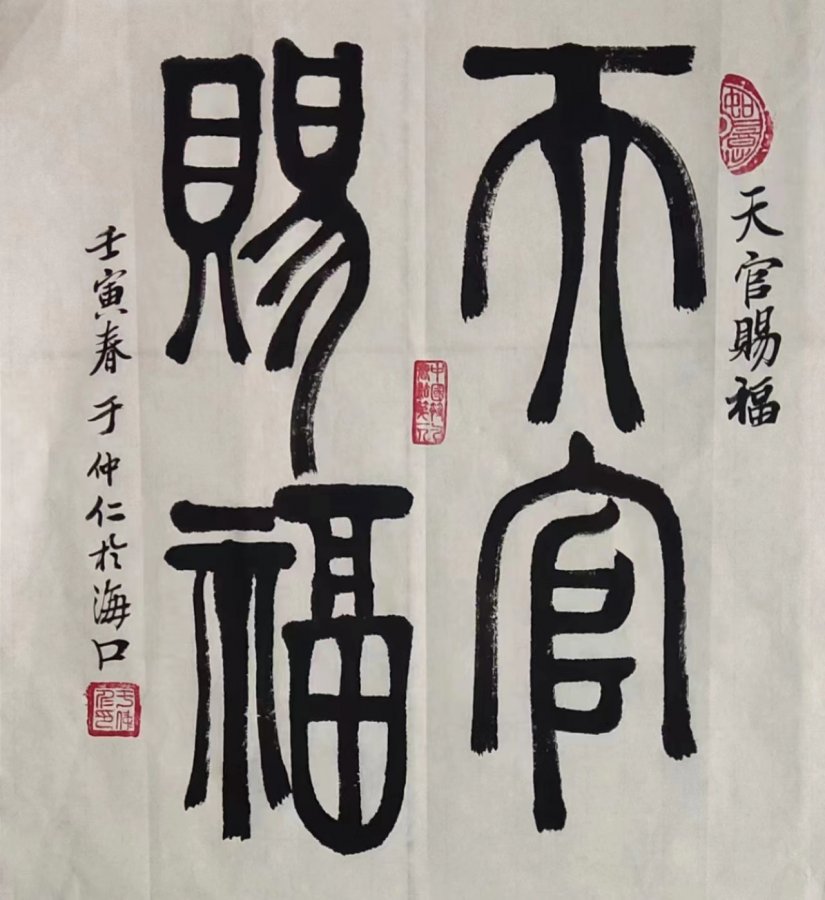 天官賜福
天官
賜福
壬寅春于仲仁於海口
如意